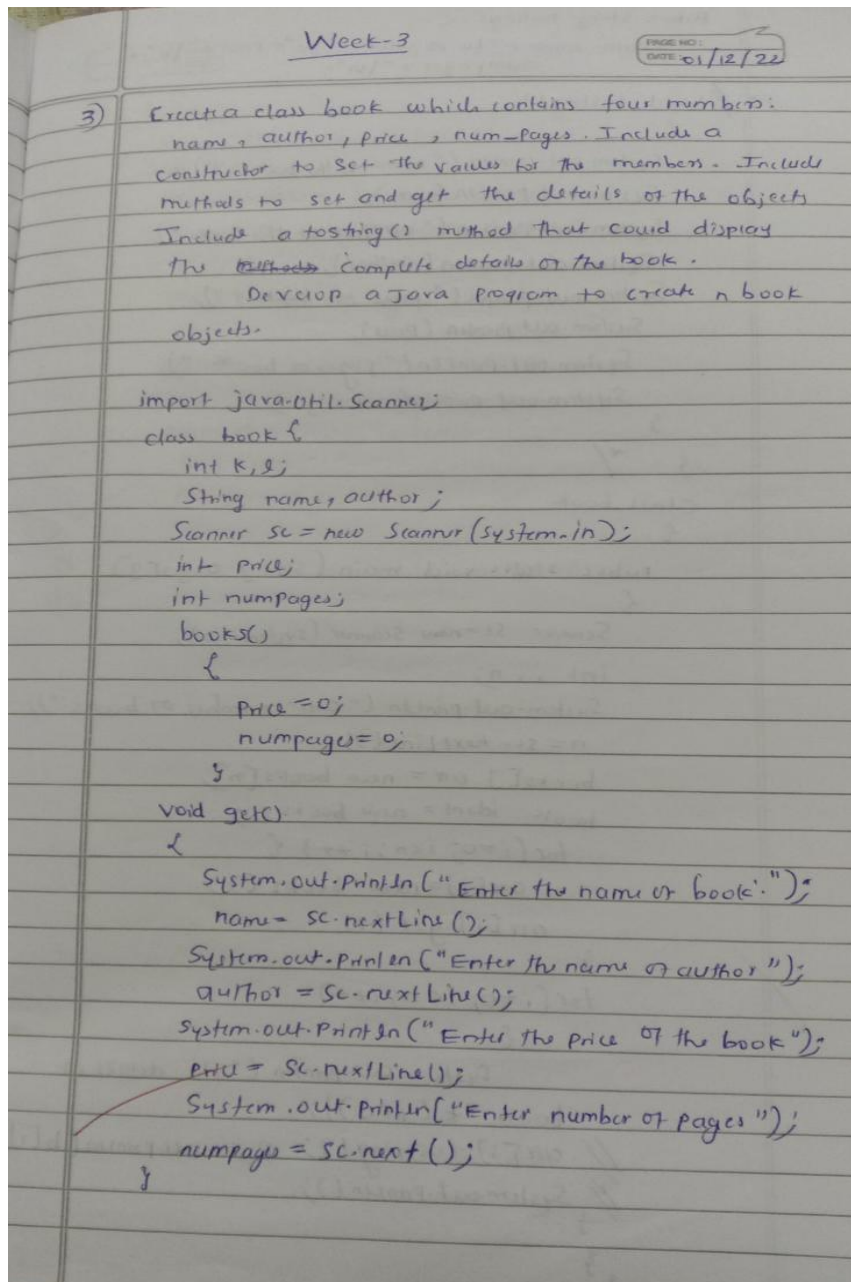 Week-3
PAGE NO:
DATE: 01/12/22
3) Create a class book which contains four members:
name, author, price, num_pages. Include a
constructor to set the values for the members. Include
methods to set and get the details of the objects
Include a tostring() method that could display
the methods complete details of the book.
Develop a Java program to create n book
objects.
import java.util.Scanner;
class book {
int k, l;
String name, author;
Scanner sc = new Scanner (system.in);
int price;
int numpages;
books()
{
price = 0;
numpages = 0;
}
void get()
{
System.out.println ("Enter the name of book:");
name = sc.nextLine ();
System.out.println ("Enter the name of author");
author = sc.nextLine();
System.out.println ("Enter the price of the book");
price = sc.nextLine();
System.out.println ("Enter number of pages");
numpages = sc.next ();
}